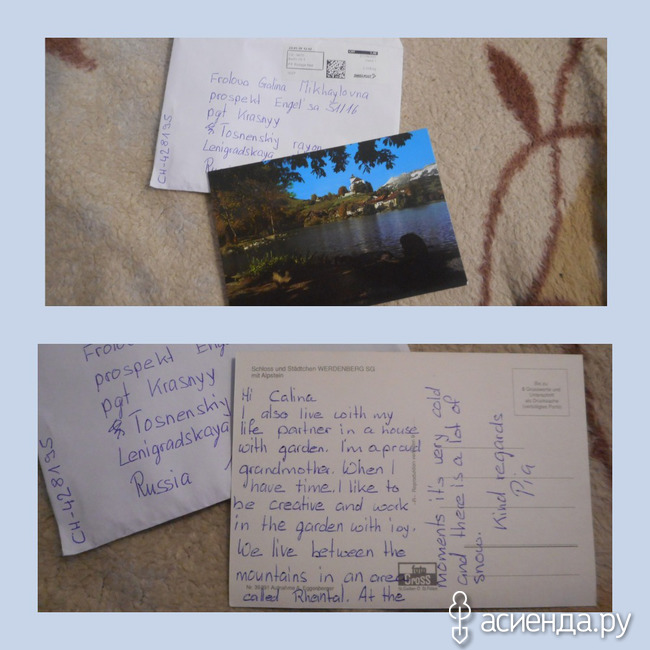 Frolova Galina Mikhaylovna
prospekt Engel'sa 51116
pgt Krasnyy
Tosnenskiy rayon
Lenigradskaya
Ru
CH-428195
prospekt Eng
pgt Krasnyy
Tosnenskiy
Lenigradskaya
Russia
CH-428195
Schloss und Städtchen WERDENBERG SG
mit Alpstein
Hi Calina
I also live with my
life partner in a house
with garden. I'm a proud
grandmother. When I
have time. I like to
be creative and work
in the garden with joy.
We live between the
mountains in an area
called Rheintal. At the
moments it's very cold
and there is a lot of
snow.
Kind regards
Pia
foto
Gross
асиенда.ру